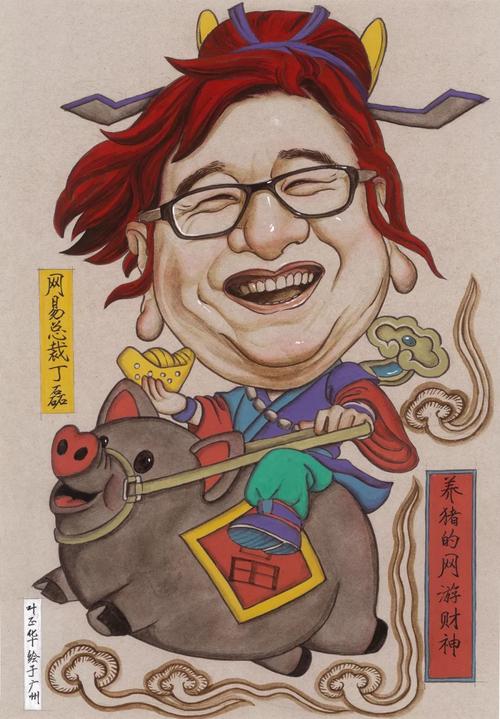 网易总裁丁磊
养猪的网游财神
叶正华绘于广州